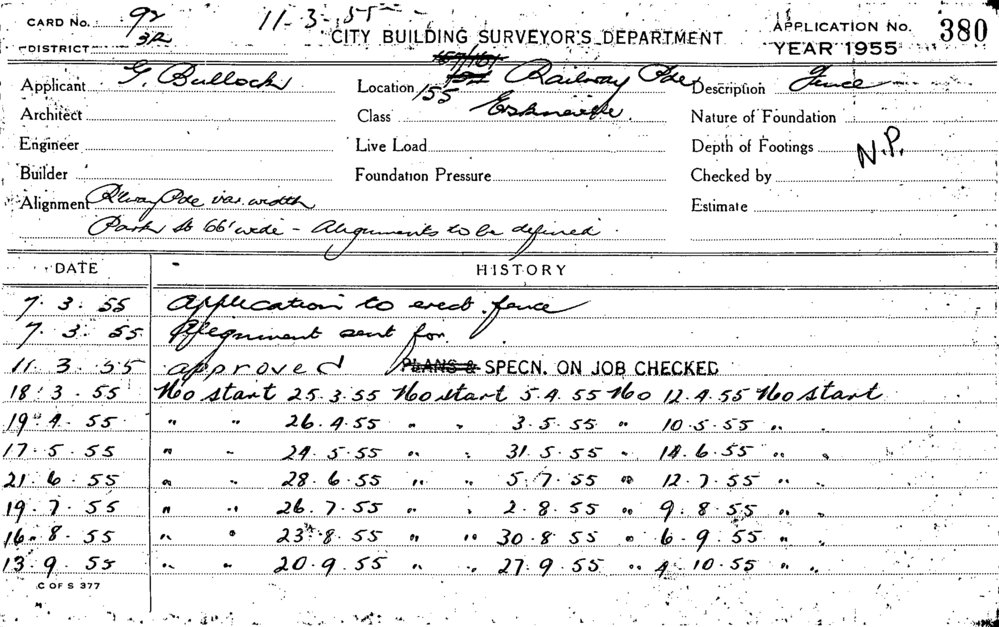 CARD No. 92 11-3-55 APPLICATION No. 380
312 CITY BUILDING SURVEYOR'S DEPARTMENT
DISTRICT YEAR 1955
157/161
Applicant G. Bullock Location 155 Railway Pde Description Fence
Architect Class Erskineville Nature of Foundation
Engineer Live Load Depth of Footings N.P.
Builder Foundation Pressure Checked by
Alignment R'way Pde var. width Estimate
Park St 66' wide - Alignments to be defined.
DATE HISTORY
7. 3. 55 Application to erect fence
7. 3. 55 Alignment sent for
11 3. 55 approved PLANS & SPECN. ON JOB CHECKED
18. 3. 55 No start 25.3.55 No start 5.4.55 No 12.4.55 No start
19. 4. 55 " " 26.4.55 " " 3.5.55 " 10.5.55 " "
17. 5. 55 " " 24.5.55 " " 31.5.55 " 14.6.55 " "
21. 6. 55 " " 28.6.55 " " 5.7.55 " 12.7.55 " "
19. 7. 55 " " 26.7.55 " " 2.8.55 " 9.8.55 " "
16. 8. 55 " " 23.8.55 " " 30.8.55 " 6.9.55 " "
13. 9. 55 " " 20.9.55 " " 27.9.55 " 4.10.55 " "
C OF S 377